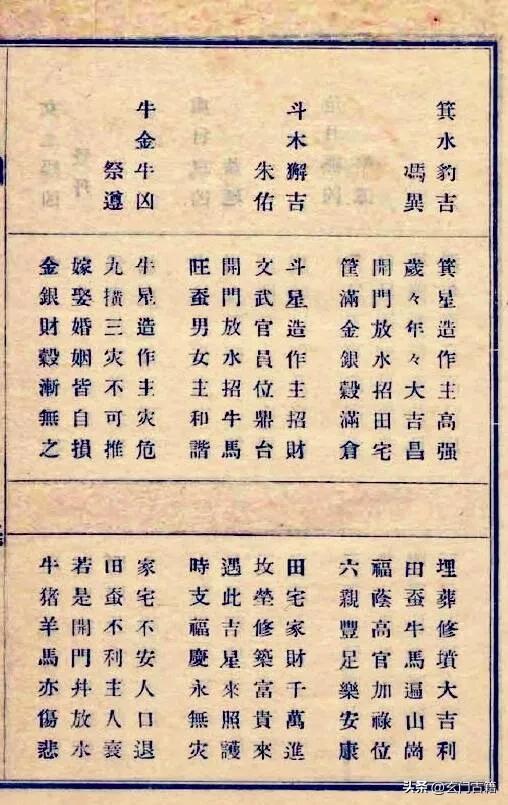 箕水豹吉
馮異
箕星造作主高强
歲々年々大吉昌
開門放水招田宅
筐滿金銀穀滿倉
埋葬修墳大吉利
田蚕牛馬遍山崗
福蔭高官加祿位
六親豐足樂安康
斗木獬吉
朱佑
斗星造作主招財
文武官員位鼎台
開門放水招牛馬
旺蚕男女主和諧
田宅家財千萬進
坟塋修築富貴來
遇此吉星來照護
時支福慶永無灾
牛金牛凶
祭遵
牛星造作主灾危
九横三灾不可推
嫁娶婚姻皆自損
金銀財穀漸無之
家宅不安人口退
田蚕不利主人衰
若是開門并放水
牛猪羊馬亦傷悲
头条 @玄门古籍